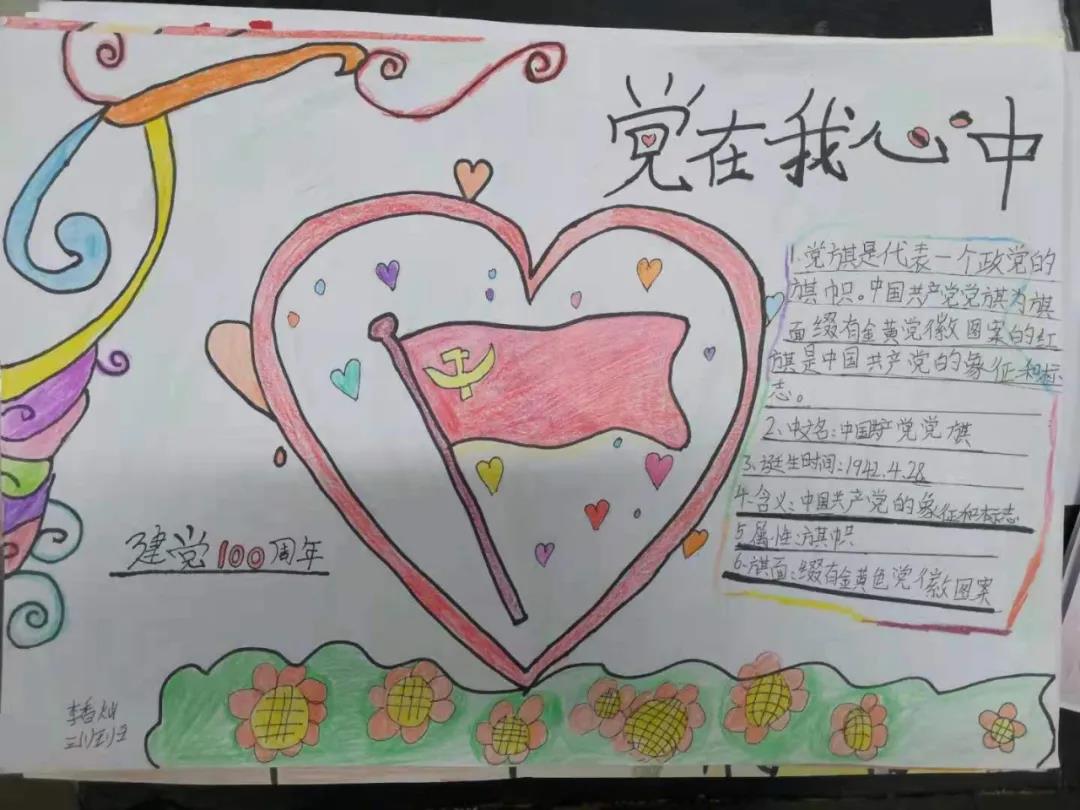 党在我心中
1.党旗是代表一个政党的
旗帜。中国共产党党旗为旗
面缀有金黄党徽图案的红
旗是中国共产党的象征和标
志。
2、中文名:中国共产党党旗
3、诞生时间:1942.4.28
4、含义:中国共产党的象征和标志
5、属性:旗帜
6、旗面:缀有金黄色党徽图案
建党100周年
李香灿